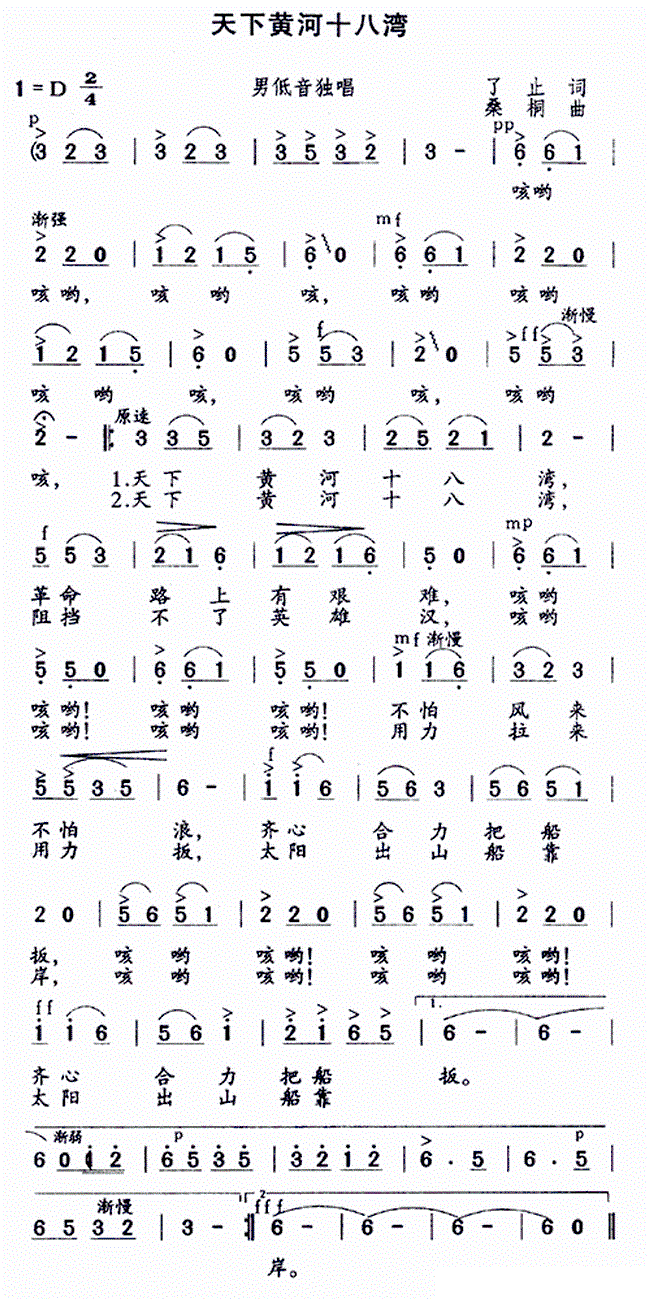 天下黄河十八湾
1=D 2/4 男低音独唱 了止词
桑桐曲
p pp
(3 2 3 | 3 2 3 | 3 5 3 2 | 3 - | 6 6 1 |
咳哟
渐强 mf
2 2 0 | 1 2 1 5 | 6 0 | 6 6 1 | 2 2 0 |
咳哟, 咳 哟 咳, 咳哟 咳哟
f ff 渐慢
1 2 1 5 | 6 0 | 5 5 3 | 2 0 | 5 5 3 |
咳 哟 咳, 咳哟 咳, 咳哟
原速
2 - ‖: 3 3 5 | 3 2 3 | 2 5 2 1 | 2 - |
咳, 1.天下 黄 河 十 八 湾,
2.天下 黄 河 十 八 湾,
f mp
5 5 3 | 2 1 6 | 1 2 1 6 | 5 0 | 6 6 1 |
革命 路 上 有 艰 难, 咳哟
阻挡 不 了 英 雄 汉, 咳哟
mf 渐慢
5 5 0 | 6 6 1 | 5 5 0 | 1 1 6 | 3 2 3 |
咳哟! 咳哟 咳哟! 不怕 风 来
咳哟! 咳哟 咳哟! 用力 拉 来
f
5 5 3 5 | 6 - | i i 6 | 5 6 3 | 5 6 5 1 |
不怕 浪, 齐心 合 力 把 船
用力 扳, 太阳 出 山 船 靠
2 0 | 5 6 5 1 | 2 2 0 | 5 6 5 1 | 2 2 0 |
扳, 咳 哟 咳哟! 咳 哟 咳哟!
岸, 咳 哟 咳哟! 咳 哟 咳哟!
ff 1.
i i 6 | 5 6 i | 2 i 6 5 | 6 - | 6 - |
齐心 合 力 把船 扳。
太阳 出 山 船靠
渐弱 p p
6 0 i 2 | 6 5 3 5 | 3 2 1 2 | 6 . 5 | 6 . 5 |
渐慢 2. fff
6 5 3 2 | 3 - :‖ 6 - | 6 - | 6 - | 6 0 ‖
岸。